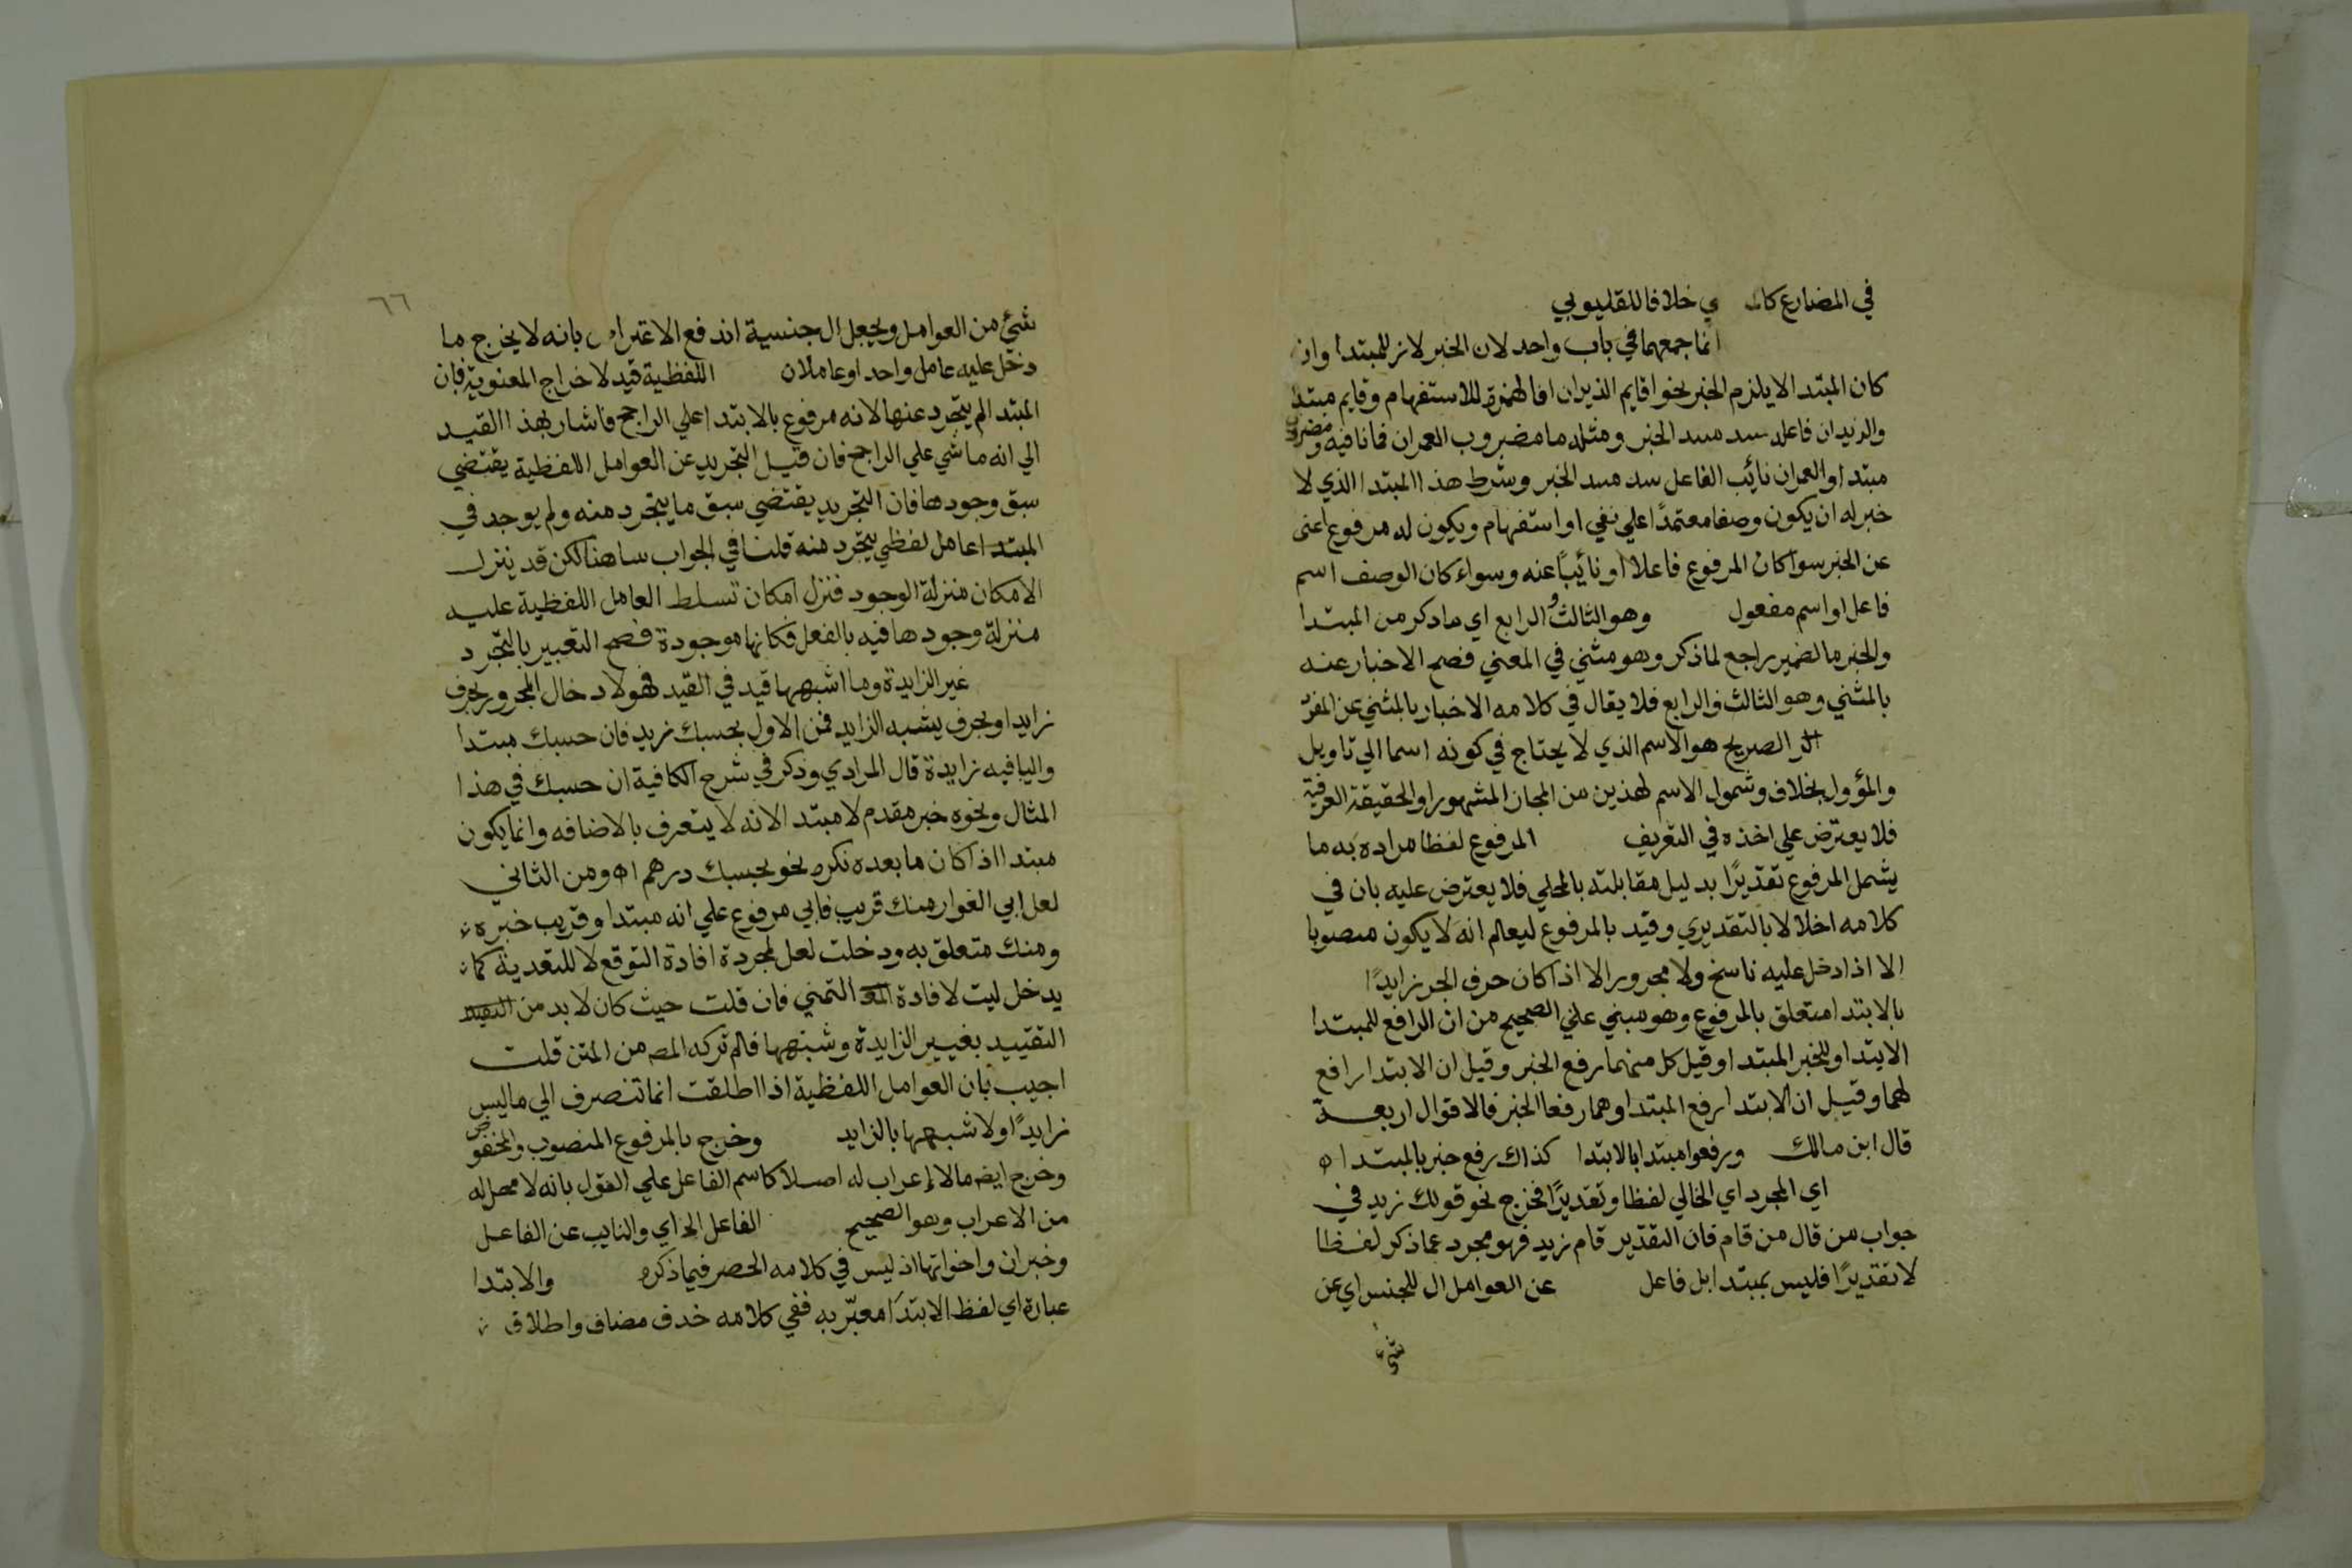 في المضارع ي خلافا للقليوبي
انما جمعهما في باب واحد لان الخبر لازم للمبتدا وان
كان المبتدا لا يلزم الخبر نحو اقايم الزيدان افالهمزة للاستفهام وقايم مبتدا
والزيدان فاعله سد مسد الخبر ومثله ما مضروب العمران فما نافيه ومضروب
مبتدا والعمران نائب الفاعل سد مسد الخبر وشرط هذا المبتدا الذي لا
خبر له ان يكون وصفا معتمدًا علي نفي او استفهام ويكون له مرفوع اغنى
عن الخبر سوا كان المرفوع فاعلا او نائبًا عنه وسواء كان الوصف اسم
فاعل او اسم مفعول وهو الثالث و الرابع اي ما دكر من المبتدا
والخبر فالضمير راجع لما ذكر وهو مثني في المعني فصح الاخبار عنه
بالمثني وهو الثالث والرابع فلا يقال في كلامه الاخبار بالمثني عن المفرد
الصريح هو الاسم الذي لا يحتاج في كونه اسما الي تاويل
والمؤول بخلافه وشمول الاسم لهذين من المجاز المشهور او الحقيقة العرفية
فلا يعترض علي اخذه في التعريف المرفوع لفظا مراده به ما
يشمل المرفوع تقديرًا بدليل مقابلته بالمحلي فلا يعترض عليه بان في
كلامه اخلالا بالتقديري وقيد بالمرفوع ليعلم انه لا يكون منصوبا
الا اذا دخل عليه ناسخ ولا مجرورا الا اذا كان حرف الجر زايدًا
بالابتدا متعلق بالمرفوع وهو مبني علي الصحيح من ان الرافع للمبتدا
الابتدا وللخبر المبتدا وقيل كل منهما رفع الخبر وقيل ان الابتدا رافع
لهما وقيل ان الابتدا رفع المبتدا وهما رفعا الخبر فالاقوال اربعة
قال ابن مالك ورفعوا مبتدا بالابتدا كذاك رفع خبر بالمبتدا اه
اي المجرد اي الخالي لفظا وتقديرًا فخرج نحو قولك زيد في
جواب من قال من قام فان التقدير قام زيد فهو مجرد عما ذكر لفظا
لا تقديرًا فليس بمبتدا بل فاعل عن العوامل ال للجنس اي عن
شيء
٦٦
شيئ من العوامل وبجعل ال جنسية اندفع الاعتراض بانه لا يخرج ما
دخل عليه عامل واحد او عاملان اللفظية قيد لاخراج المعنوية فان
المبتدا لم يتجرد عنها لانه مرفوع بالابتدا علي الراجح فاشار بهذا القيد
الي انه ماشي علي الراجح فان قيل التجريد عن العوامل اللفظية يقتضي
سبق وجودها فان التجريد يقتضي سبق ما يتجرد منه ولم يوجد في
المبتدا عامل لفظي يتجرد منه قلنا في الجواب لكن قد ينزل
الامكان منزلة الوجود فنزل امكان تسلط العامل اللفظية عليه
منزلة وجودها فيه بالفعل فكانها موجودة فصح التعبير بالتجرد
غير الزايدة وما اشبهها قيد في القيد فهو لادخال المجرور بحرف
زايد او بحرف يشبه الزايد فمن الاول بحسبك زيد فان حسبك مبتدا
واليا فيه زايدة قال المرادي وذكر في شرح الكافية ان حسبك في هذا
المثال ونحوه خبر مقدم لا مبتدا لانه لا يتعرف بالاضافه وانما يكون
مبتدا اذا كان ما بعده نكره نحو بحسبك درهم اه ومن الثاني
لعل ابي المغوار منك قريب فابي مرفوع علي انه مبتدا وقريب خبره
ومنك متعلق به ودخلت لعل لمجردة افادة التوقع لا للتعدية كما
يدخل ليت لافادة التمني فان قلت حيث كان لا بد من
التقييد بغيير الزايدة وشبهها فلم تركه المصه من المتن قلت
اجيب بان العوامل اللفظية اذا اطلقت انما تنصرف الي ما ليس
زايدًا ولا شبهها بالزايد وخرج بالمرفوع المنصوب والمخفوض
وخرج ايضه ما لا إعراب له اصلا كاسم الفاعل علي القول بانه لا محل له
من الاعراب وهو الصحيح الفاعل الخ اي والنايب عن الفاعل
وخبر ان واخواتها اذ ليس في كلامه الحصر فيما ذكره والابتدا
عبارة اي لفظ الابتدا معبّر به ففي كلامه حذف مضاف واطلاق